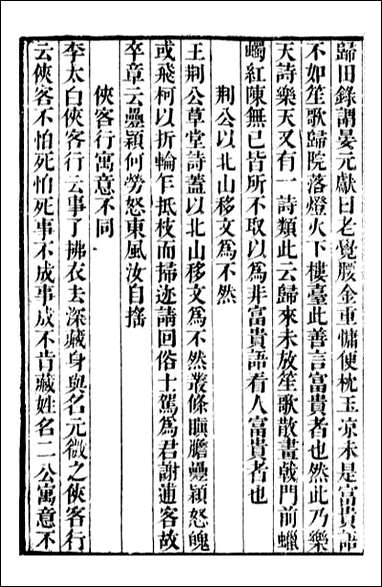 歸田錄謂晏元獻曰老覺腰金重慵便枕玉凉未是富貴語
不如笙歌歸院落燈火下樓臺此善言富貴者也然此乃樂
天詩樂天又有一詩類此云歸來未放笙歌散畫戟門前蠟
蠋紅陳無已皆所不取以爲非富貴語看人富貴者也
荆公以北山移文爲不然
王荆公草堂詩蓋以北山移文爲不然叢條瞋膽壘穎怒魄
或飛柯以折輪乍抵枝而掃迹請回俗士駕爲君謝逋客故
卒章云壘穎何勞怒東風汝自搖
俠客行寓意不同
李太白俠客行云事了拂衣去深藏身與名元微之俠客行
云俠客不怕死怕死事不成事成不肯藏姓名二公寓意不